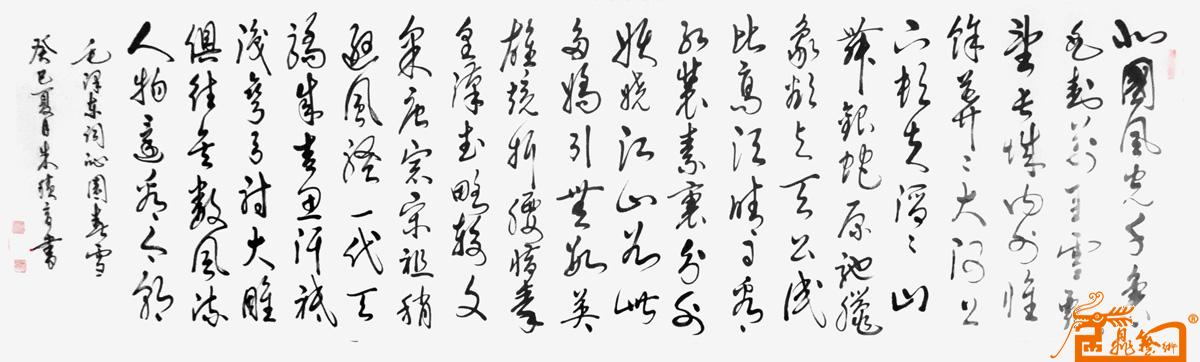 北國風光千里
冰封萬里雪飄
望長城內外惟
餘莽〻大河上
下頓失滔〻山
舞銀蛇原馳蠟
象欲与天公試
比高須晴日看
紅裝素裹分外
妖嬈江山如此
多嬌引無數英
雄競折腰惜秦
皇漢武略輸文
采唐宗宋祖稍
遜風騷一代天
驕成吉思汗祗
識彎弓射大雕
俱往矣數風流
人物還看今朝
毛澤東詞沁園春雪
癸巳夏月朱書